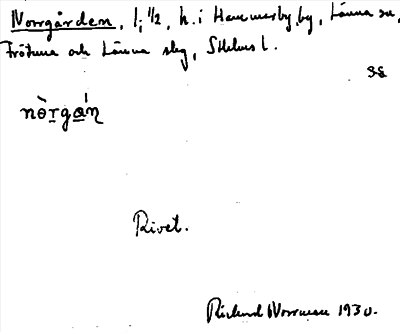 Norrgården, 1, 1/2, h. i Hammarby by, Länna sn,
Frötuna och Länna slg, Sthlms l.
SS
nòrgán
Rivet.
Richard Norrman 1930.